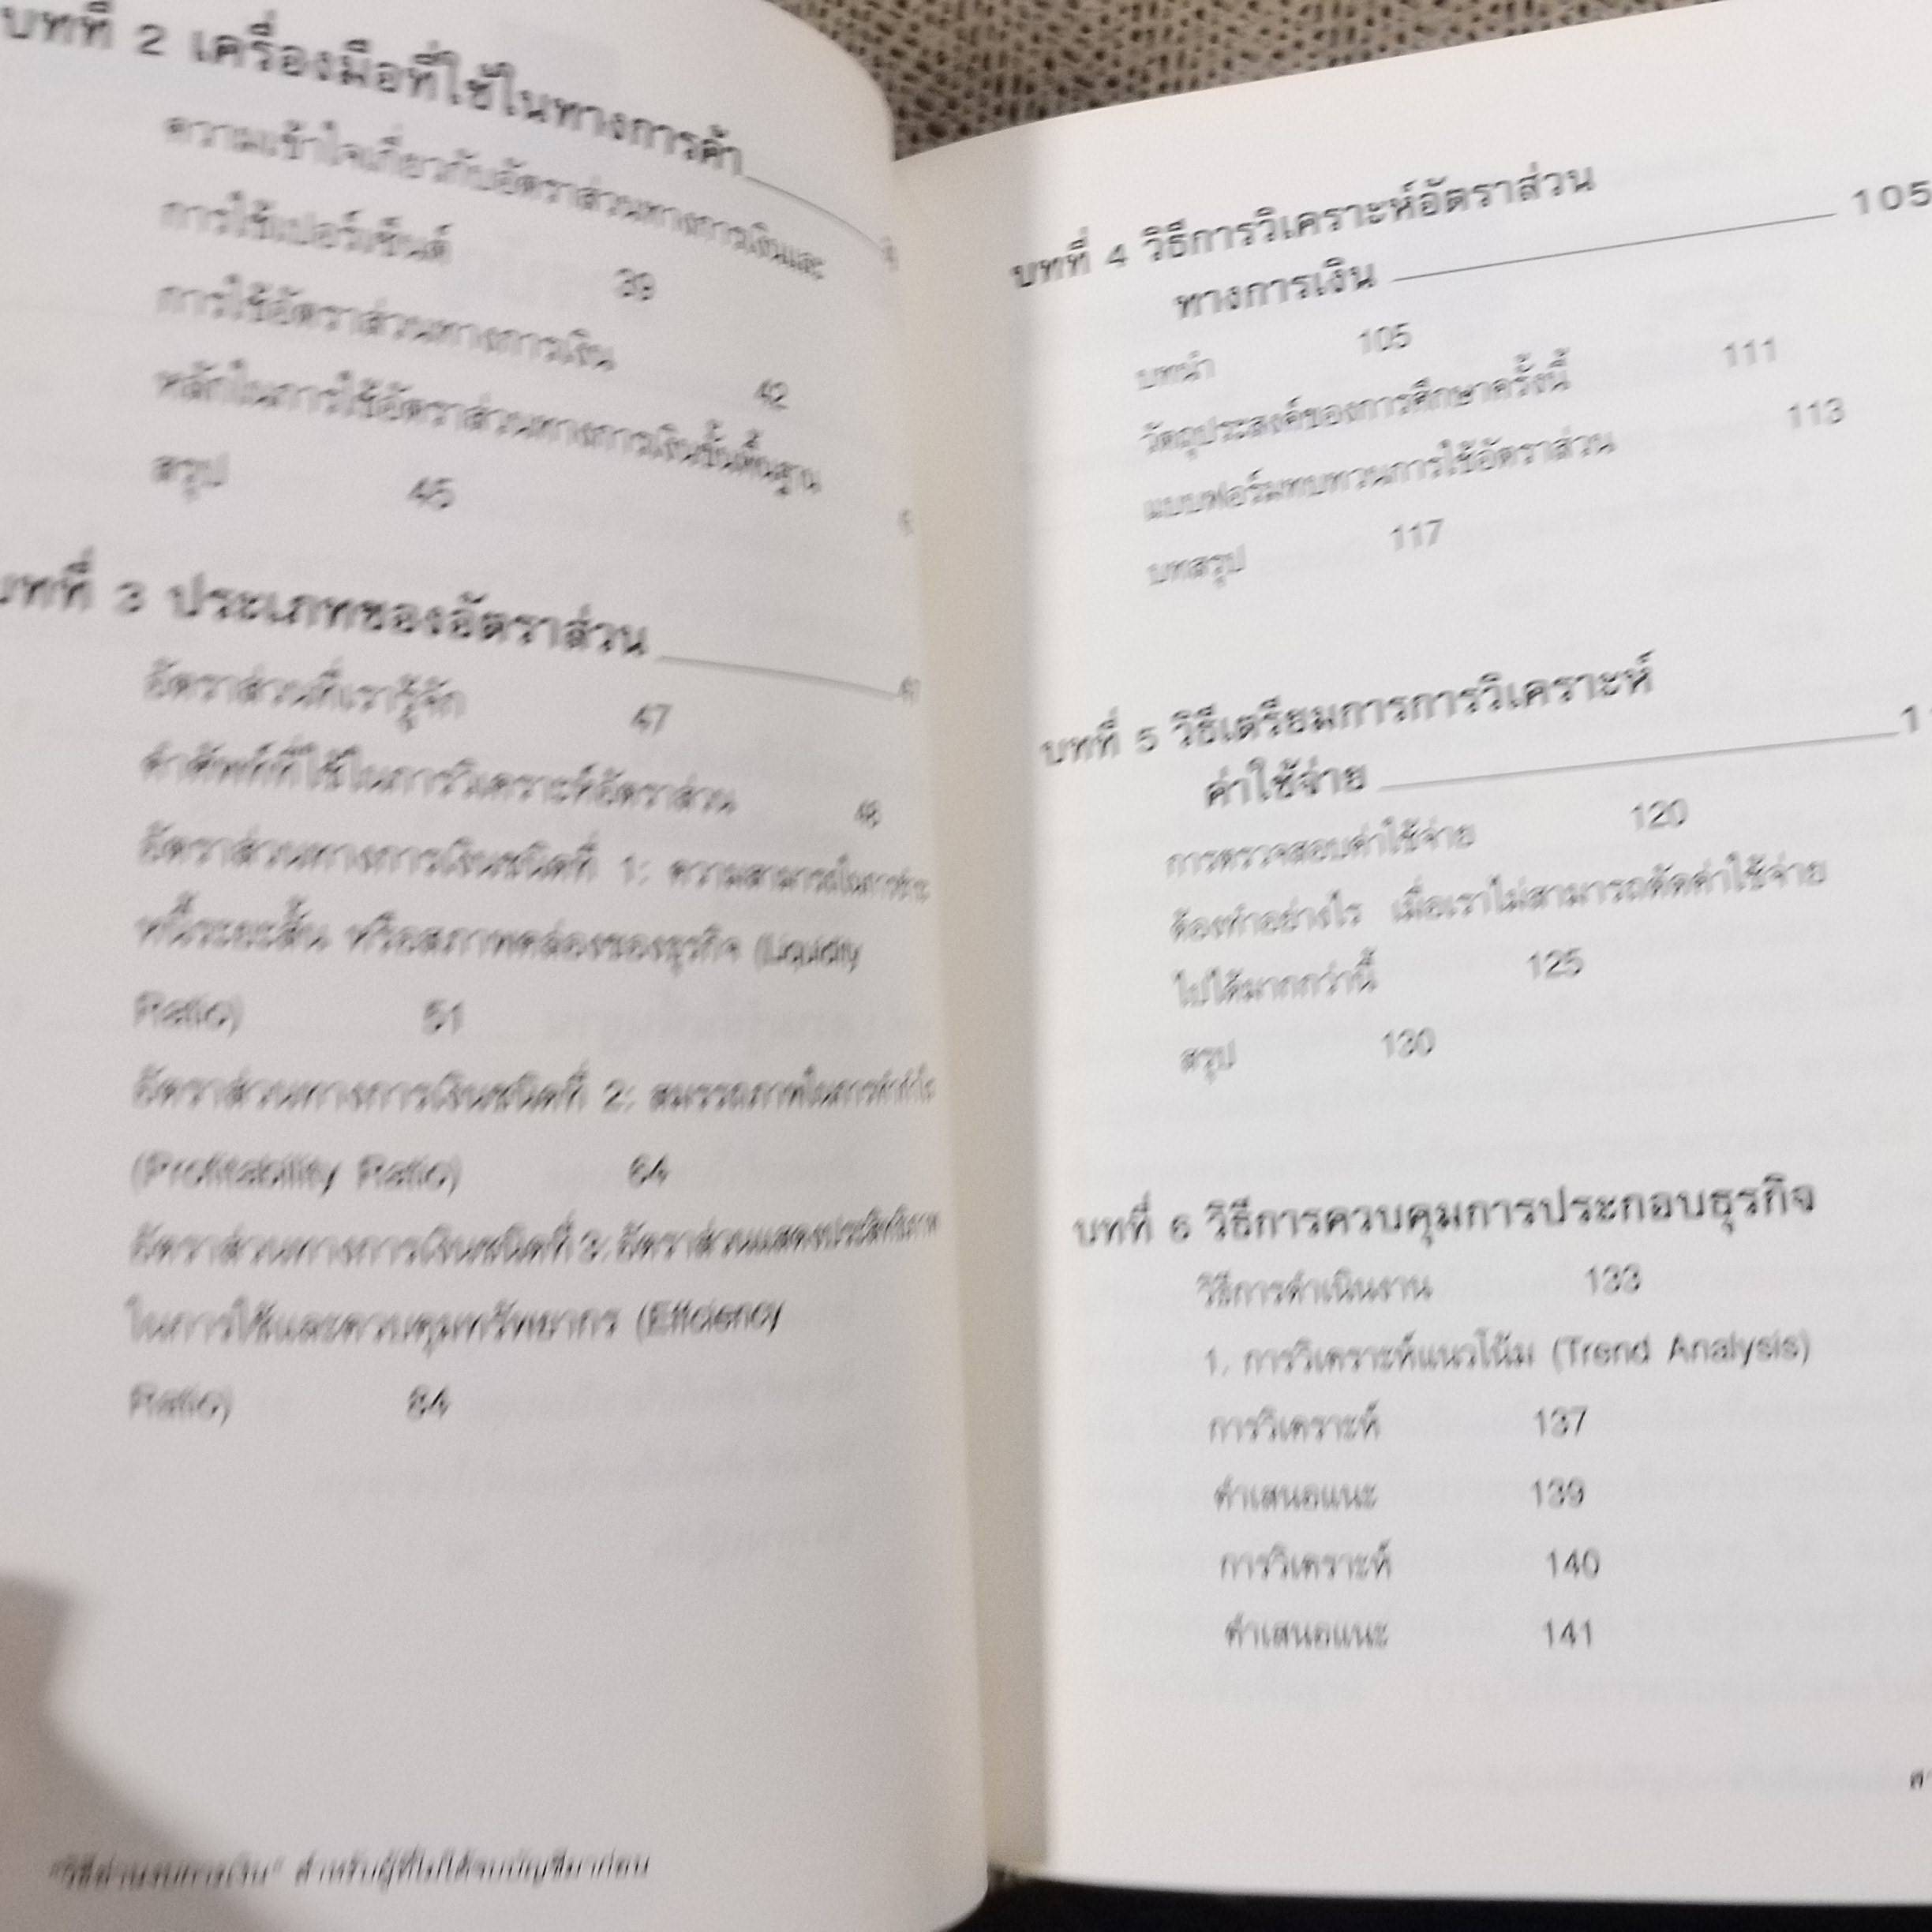 บทที่ 2 เครื่องมือที่ใช้ในทางการค้า
ความเข้าใจเกี่ยวกับอัตราส่วนทางการเงินและ
การใช้เปอร์เซ็นต์ 39
การใช้อัตราส่วนทางการเงิน 42
หลักในการใช้อัตราส่วนทางการเงินขั้นพื้นฐาน
สรุป 45
บทที่ 3 ประเภทของอัตราส่วน 47
อัตราส่วนที่เรารู้จัก 47
คำศัพท์ที่ใช้ในการวิเคราะห์อัตราส่วน 48
อัตราส่วนทางการเงินชนิดที่ 1: ความสามารถในการชำระ
หนี้ระยะสั้น หรือสภาพคล่องของธุรกิจ (Liquidity
Ratio) 51
อัตราส่วนทางการเงินชนิดที่ 2: สมรรถภาพในการทำกำไร
(Profitability Ratio) 64
อัตราส่วนทางการเงินชนิดที่ 3: อัตราส่วนแสดงประสิทธิภาพ
ในการใช้และควบคุมทรัพยากร (Efficiency
Ratio) 84
"วิธีอ่านงบการเงิน" สำหรับผู้ที่ไม่ได้จบบัญชีมาก่อน
บทที่ 4 วิธีการวิเคราะห์อัตราส่วน
ทางการเงิน 105
บทนำ 105
วัตถุประสงค์ของการศึกษาครั้งนี้ 111
แบบฟอร์มทบทวนการใช้อัตราส่วน 113
บทสรุป 117
บทที่ 5 วิธีเตรียมการการวิเคราะห์
ค่าใช้จ่าย
การตรวจสอบค่าใช้จ่าย 120
ต้องทำอย่างไร เมื่อเราไม่สามารถตัดค่าใช้จ่าย
ไปได้มากกว่านี้ 125
สรุป 130
บทที่ 6 วิธีการควบคุมการประกอบธุรกิจ
วิธีการดำเนินงาน 133
1. การวิเคราะห์แนวโน้ม (Trend Analysis)
การวิเคราะห์ 137
คำเสนอแนะ 139
การวิเคราะห์ 140
คำเสนอแนะ 141